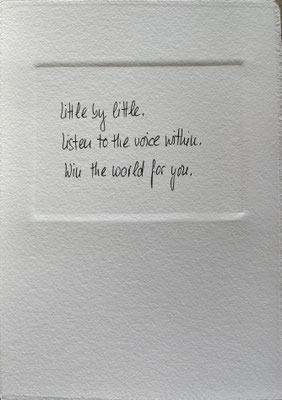 Little by little.
Listen to the voice within.
Win the world for you.